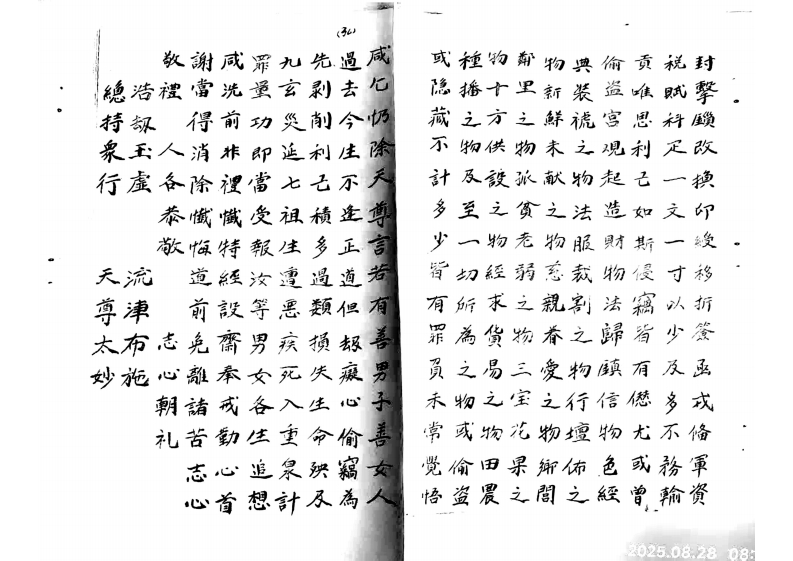 封擊鎖改換印綬移折簽函戎俻軍資
税賦科疋一文一寸以少及多不務輸
貢唯思利己如斯侵竊皆有僁尤或曾
偷盗宫观起造財物法歸鎮信物色經
典裝褫之物法服裁割之物行壇佈之
物新鮮未献之物慈親眷愛之物鄉間
鄰里之物孤貧老弱之物三宝花果之
物十方供設之物經求貨易之物田農
種播之物及至一切所為之物或偷盗
或隐藏不計多少皆有罪負未常覺悟
(34)
咸乞忉除天尊言若有善男子善女人
過去今生不逢正道但刼癡心偷竊為
先剥削利己積多過類損失生命殃及
九玄災延七祖生遭悪疾死入重泉計
罪量功即當受報汝等男女各生追想
咸洗前非禮懺特經設齋奉戒勤心首
謝當得消除懺悔道前免離諸苦志心
敬禮 人各恭敬 志心朝礼
浩刼玉虚 流津布施
總持衆行 天尊太妙
2025.08.28 08: